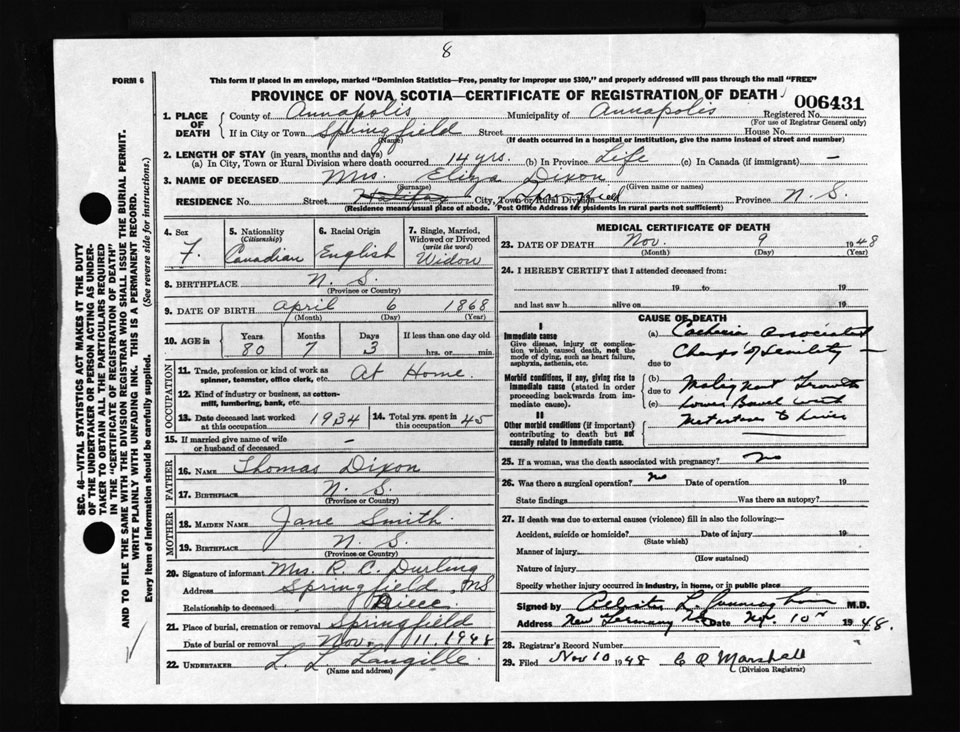 8
FORM 6
This form if placed in an envelope, marked "Dominion Statistics—Free, penalty for improper use $300," and properly addressed will pass through the mail "FREE"
PROVINCE OF NOVA SCOTIA—CERTIFICATE OF REGISTRATION OF DEATH
006431
1. PLACE OF DEATH
County of Annapolis Municipality of Annapolis Registered No.
(For use of Registrar General only)
If in City or Town Springfield Street House No.
(Name) (If death occurred in a hospital or institution, give the name instead of street and number)
2. LENGTH OF STAY (in years, months and days)
(a) In City, Town or Rural Division where death occurred 14 yrs. (b) In Province Life (c) In Canada (if immigrant) —
3. NAME OF DECEASED Mrs. Eliza Dixon
(Surname) (Given name or names)
RESIDENCE No. Street Halifax City, Town or Rural Division Province N. S.
(Residence means usual place of abode. Post Office Address for residents in rural parts not sufficient)
4. Sex F.
5. Nationality (Citizenship) Canadian
6. Racial Origin English
7. Single, Married, Widowed or Divorced (write the word) Widow
8. BIRTHPLACE N. S.
(Province or Country)
9. DATE OF BIRTH April 6 1868
(Month) (Day) (Year)
10. AGE in Years 80 Months 7 Days 3 If less than one day old hrs. or min.
OCCUPATION
11. Trade, profession or kind of work as spinner, teamster, office clerk, etc. At Home.
12. Kind of industry or business, as cotton-mill, lumbering, bank, etc.
13. Date deceased last worked at this occupation 1934
14. Total yrs. spent in this occupation 45
15. If married give name of wife or husband of deceased —
FATHER
16. NAME Thomas Dixon
17. BIRTHPLACE N. S.
(Province or Country)
MOTHER
18. MAIDEN NAME Jane Smith.
19. BIRTHPLACE N. S.
(Province or Country)
20. Signature of informant Mrs. R. C. Durling
Address Springfield, NS
Relationship to deceased Niece.
21. Place of burial, cremation or removal Springfield
Date of burial or removal Nov. 11. 1948
22. UNDERTAKER L. L. Langille.
(Name and address)
MEDICAL CERTIFICATE OF DEATH
23. DATE OF DEATH Nov. 9 1948
(Month) (Day) (Year)
24. I HEREBY CERTIFY that I attended deceased from:
19 to 19
and last saw h alive on 19
CAUSE OF DEATH
I
Immediate cause
Give disease, injury or complication which caused death, not the mode of dying, such as heart failure, asphyxia, asthenia, etc.
(a) Associated
due to of Senility —
Morbid conditions, if any, giving rise to immediate cause (stated in order proceeding backwards from immediate cause).
(b) Malignant Growth
due to
(c) Lower Bowel with
II
Other morbid conditions (if important) contributing to death but not causally related to immediate cause.
25. If a woman, was the death associated with pregnancy? No
26. Was there a surgical operation? No Date of operation 19
State findings Was there an autopsy?
27. If death was due to external causes (violence) fill in also the following:—
Accident, suicide or homicide? Date of injury 19
(State which)
Manner of injury
(How sustained)
Nature of injury
Specify whether injury occurred in industry, in home, or in public place
Signed by M.D.
Address New Germany Date 10 1948.
28. Registrar's Record Number
29. Filed Nov 10 1948 Marshall
(Division Registrar)
SEC. 46—VITAL STATISTICS ACT MAKES IT THE DUTY
OF THE UNDERTAKER OR PERSON ACTING AS UNDER-
TAKER TO OBTAIN ALL THE PARTICULARS REQUIRED
IN THE "CERTIFICATE OF REGISTRATION OF DEATH"
AND TO FILE THE SAME WITH THE DIVISION REGISTRAR WHO SHALL ISSUE THE BURIAL PERMIT.
WRITE PLAINLY WITH UNFADING INK. THIS IS A PERMANENT RECORD.
Every item of information should be carefully supplied. (See reverse side for instructions.)